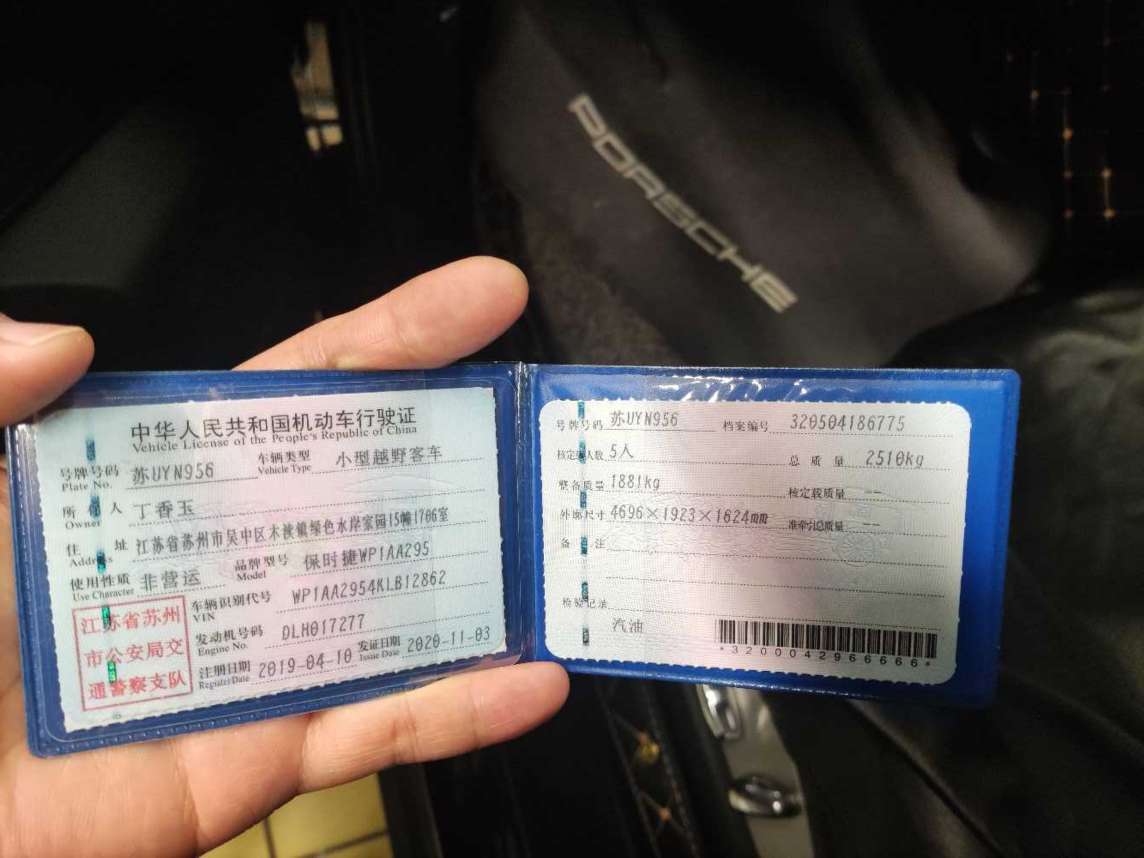 PORSCHE
中华人民共和国机动车行驶证
Vehicle License of the People's Republic of China
号牌号码 苏UYN956 车辆类型 小型越野客车
Plate No. Vehicle Type
所有人 丁香玉
Owner
住址 江苏省苏州市吴中区木渎镇绿色水岸家园15幢1706室
Address
使用性质 非营运 品牌型号 保时捷WP1AA295
Use Character Model
江苏省苏州
市公安局交
通警察支队
车辆识别代号 WP1AA2954KLB12862
VIN
发动机号码 DLH017277
Engine No.
注册日期 2019-04-10 发证日期 2020-11-03
Register Date Issue Date
号牌号码 苏UYN956 档案编号 320504186775
核定载人数 5人 总质量 2510kg
整备质量 1881kg 核定载质量 --
外廓尺寸 4696×1923×1624mm 准牵引总质量 --
备注
检验记录
汽油
*3200042966666*